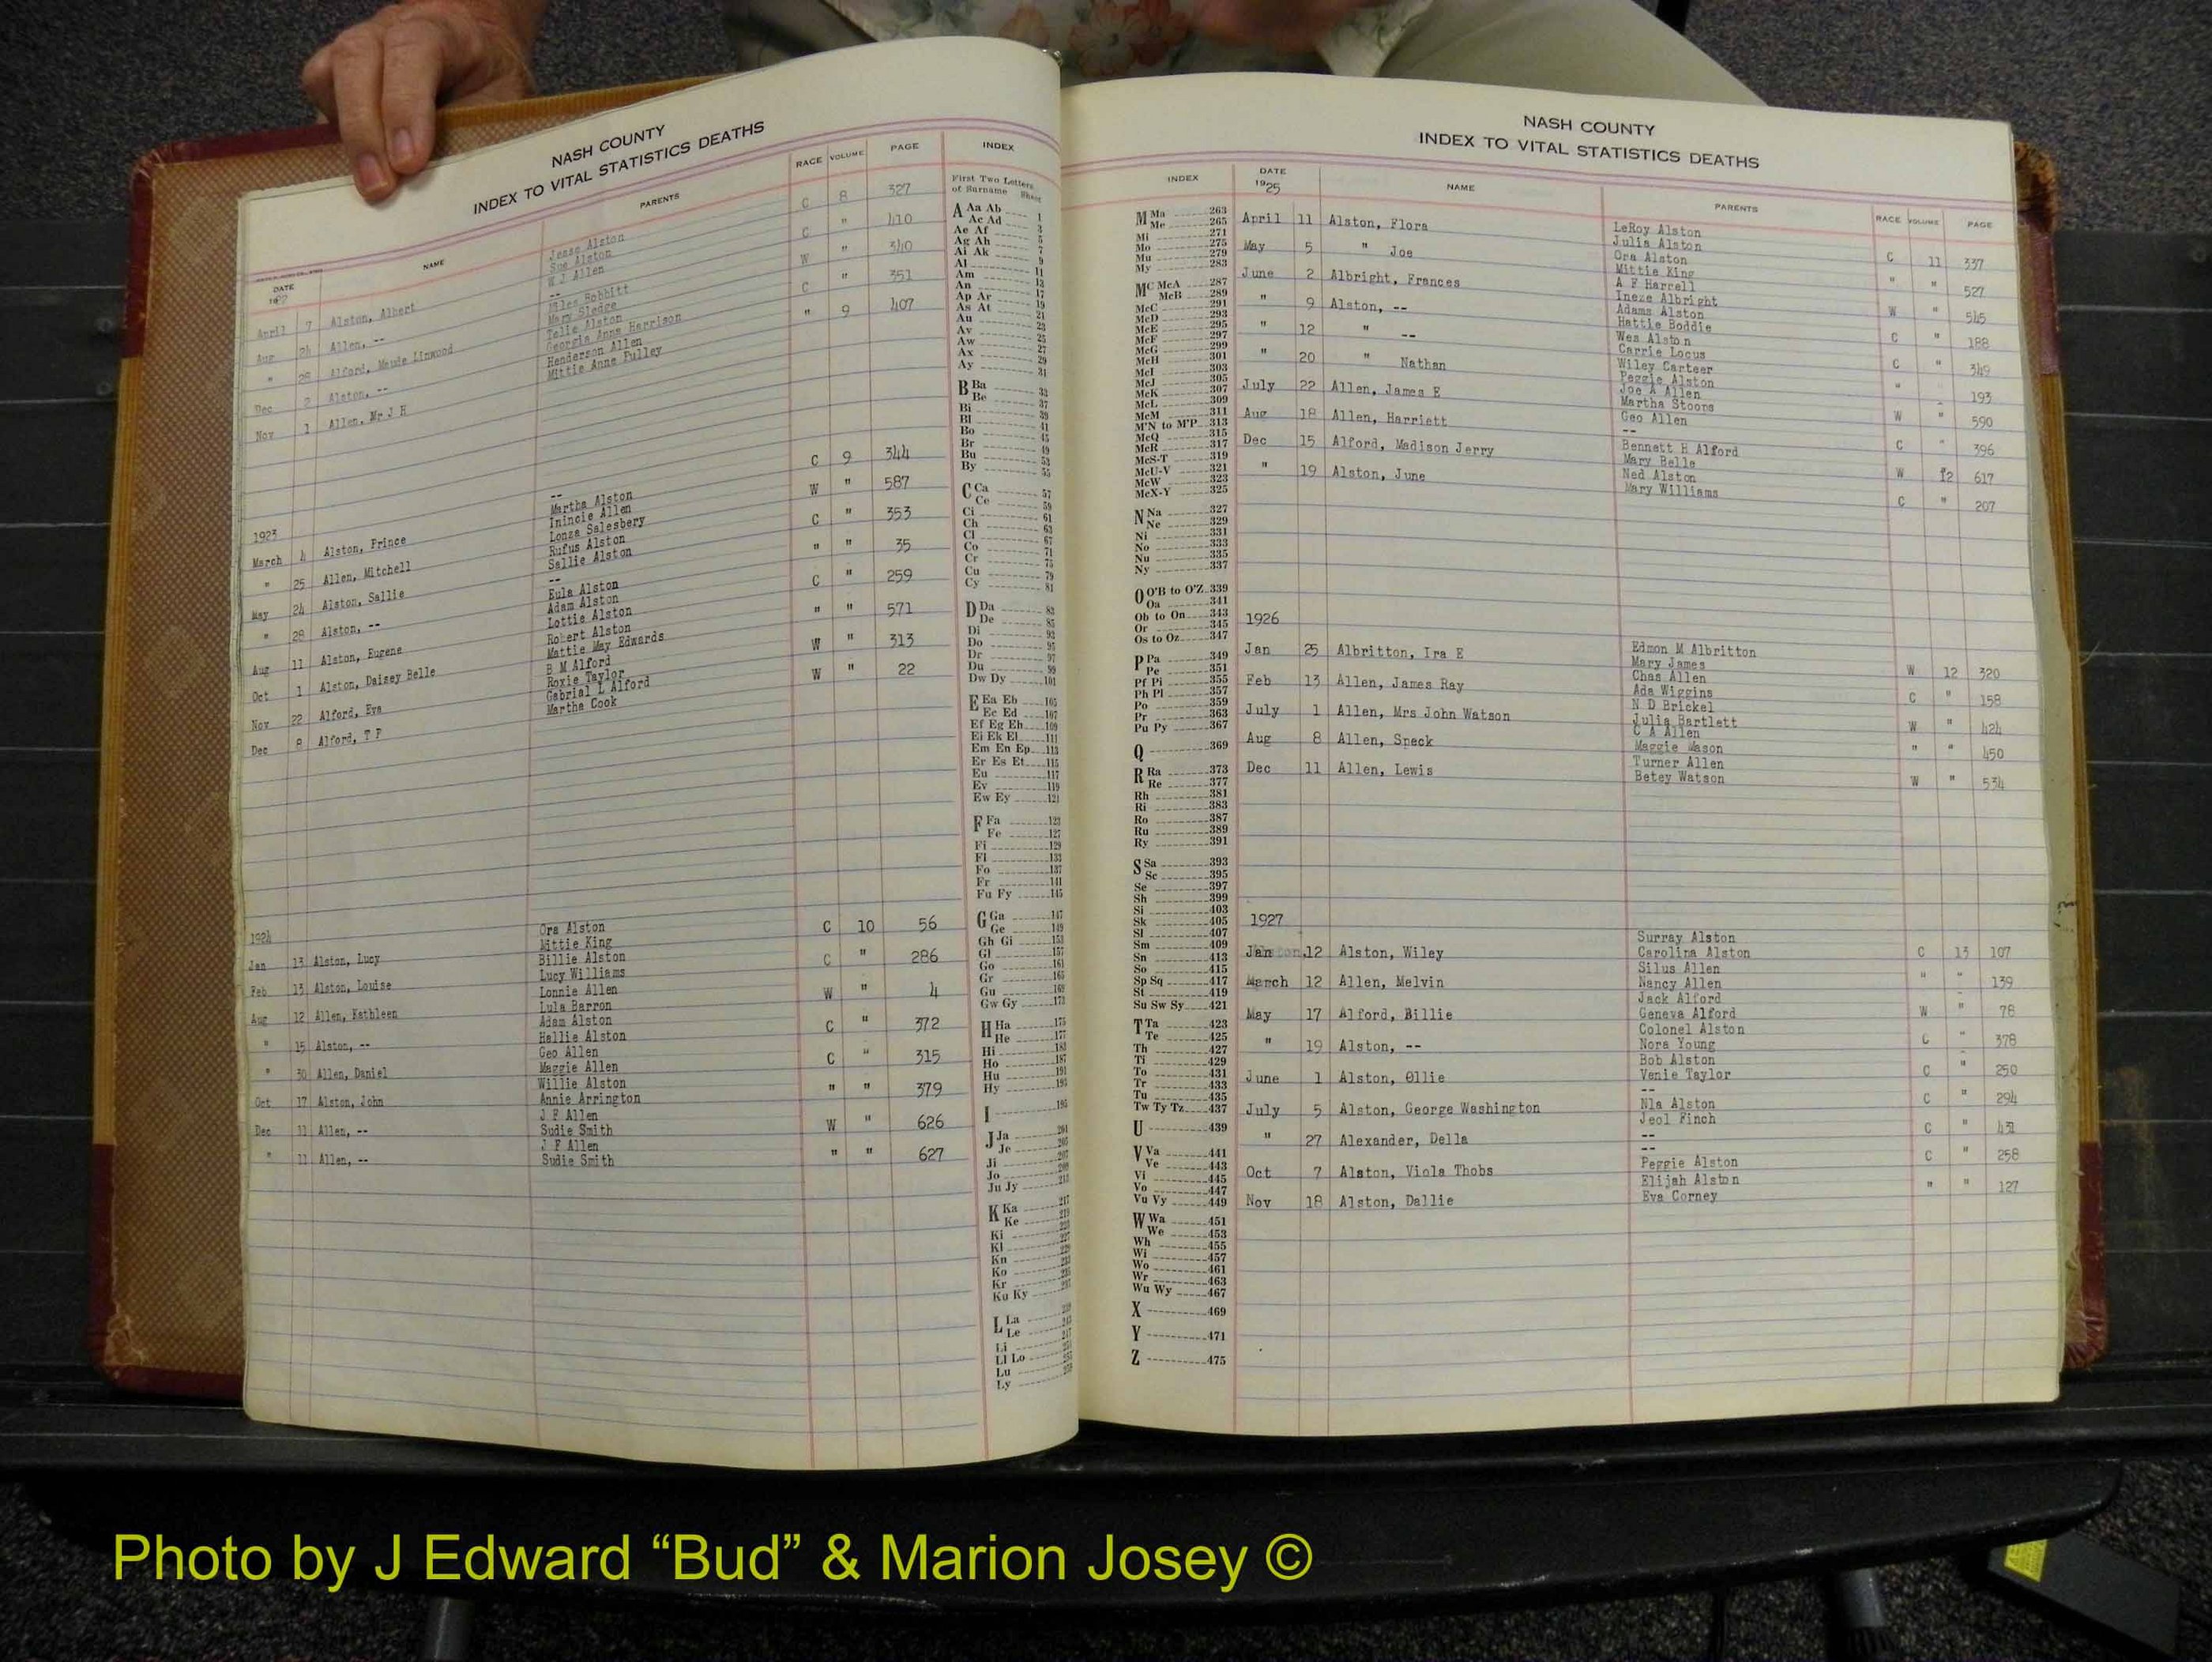 NASH COUNTY
INDEX TO VITAL STATISTICS DEATHS
DATE NAME PARENTS RACE VOLUME PAGE
April 7 Alston, Albert Jesse Alston C 8 327
Sue Alston
Aug 24 Allen, -- W J Allen C " 410
--
" 28 Alford, Maude Linwood Miles Bobbitt W " 340
Mary Sledge
Dec 2 Alston, -- Telie Alston C " 351
Georgia Anne Harrison
Nov 1 Allen, Mr J H Henderson Allen " 9 407
Mittie Anne Pulley
1923
March 4 Alston, Prince -- C 9 344
Martha Alston
" 25 Allen, Mitchell Inincie Allen W " 587
Lonza Salesbery
May 24 Alston, Sallie Rufus Alston C " 353
Sallie Alston
" 28 Alston, -- -- " " 35
Eula Alston
Aug 11 Alston, Eugene Adam Alston C " 259
Lottie Alston
Oct 1 Alston, Daisey Belle Robert Alston " " 571
Mattie May Edwards
Nov 22 Alford, Eva B M Alford W " 313
Roxie Taylor
Dec 8 Alford, T F Gabrial L Alford W " 22
Martha Cook
1924
Jan 13 Alston, Lucy Ora Alston C 10 56
Mittie King
Feb 13 Alston, Louise Billie Alston C " 286
Lucy Williams
Aug 12 Allen, Kathleen Lonnie Allen W " 4
Lula Barron
" 15 Alston, -- Adam Alston C " 372
Hallie Alston
" 30 Allen, Daniel Geo Allen C " 315
Maggie Allen
Oct 17 Alston, John Willie Alston " " 379
Annie Arrington
Dec 11 Allen, -- J F Allen W " 626
Sudie Smith
" 11 Allen, -- J F Allen " " 627
Sudie Smith
INDEX
First Two Letters
of Surname Sheet
A Aa Ab 1
Ac Ad 3
Ae Af 5
Ag Ah 7
Ai Ak 9
Al 11
Am 13
An 17
Ap Ar 19
As At 21
Au 23
Av 25
Aw 27
Ax 29
Ay 31
B Ba 33
Be 37
Bi 39
Bl 41
Bo 45
Br 49
Bu 53
By 55
C Ca 57
Ce 59
Ci 61
Ch 63
Cl 67
Co 71
Cr 75
Cu 79
Cy 81
D Da 83
De 85
Di 93
Do 95
Dr 97
Du 99
Dw Dy 101
E Ea Eb 105
Ec Ed 107
Ef Eg Eh 109
Ei Ek El 111
Em En Ep 113
Er Es Et 115
Eu 117
Ev 119
Ew Ey 121
F Fa 123
Fe 127
Fi 129
Fl 133
Fo 137
Fr 141
Fu Fy 145
G Ga 147
Ge 149
Gh Gi 153
Gl 157
Go 161
Gr 165
Gu 169
Gw Gy 173
H Ha 175
He 177
Hi 183
Ho 187
Hu 191
Hy 193
I 195
J Ja 201
Je 205
Ji
Jo
Ju Jy
K Ka 217
Ke
Ki
Kl
Kn
Ko
Kr
Ku Ky
L La
Le
Li
Ll Lo
Lu
Ly
NASH COUNTY
INDEX TO VITAL STATISTICS DEATHS
INDEX
M Ma 263
Me 265
Mi 271
Mo 275
Mu 279
My 283
MC McA 287
McB 289
McC 291
McD 293
McE 295
McF 297
McG 299
McH 301
McI 303
McJ 305
McK 307
McL 309
McM 311
M'N to M'P 313
McQ 315
McR 317
McS-T 319
McU-V 321
McW 323
McX-Y 325
N Na 327
Ne 329
Ni 331
No 333
Nu 335
Ny 337
O O'B to O'Z 339
Oa 341
Ob to On 343
Or 345
Os to Oz 347
P Pa 349
Pe 351
Pf Pi 355
Ph Pl 357
Po 359
Pr 363
Pu Py 367
Q 369
R Ra 373
Re 377
Rh 381
Ri 383
Ro 387
Ru 389
Ry 391
S Sa 393
Sc 395
Se 397
Sh 399
Si 403
Sk 405
Sl 407
Sm 409
Sn 413
So 415
Sp Sq 417
St 419
Su Sw Sy 421
T Ta 423
Te 425
Th 427
Ti 429
To 431
Tr 433
Tu 435
Tw Ty Tz 437
U 439
V Va 441
Ve 443
Vi 445
Vo 447
Vu Vy 449
W Wa 451
We 453
Wh 455
Wi 457
Wo 461
Wr 463
Wu Wy 467
X 469
Y 471
Z 475
DATE NAME PARENTS RACE VOLUME PAGE
1925
April 11 Alston, Flora LeRoy Alston C 11 337
Julia Alston
May 5 " Joe Ora Alston " " 527
Mittie King
June 2 Albright, Frances A F Harrell W " 545
Ineze Albright
" 9 Alston, -- Adams Alston C " 188
Hattie Boddie
" 12 " -- Wes Alston C " 349
Carrie Locus
" 20 " Nathan Wiley Carteer " 193
Peggie Alston
July 22 Allen, James E Joe A Allen W " 590
Martha Stoops
Aug 18 Allen, Harriett Geo Allen C " 396
--
Dec 15 Alford, Madison Jerry Bennett H Alford W 12 617
Mary Belle
" 19 Alston, June Ned Alston C " 207
Mary Williams
1926
Jan 25 Albritton, Ira E Edmon M Albritton W 12 320
Mary James
Feb 13 Allen, James Ray Chas Allen C " 158
Ada Wiggins
July 1 Allen, Mrs John Watson N D Brickel W " 424
Julia Bartlett
Aug 8 Allen, Speck C A Allen " " 450
Maggie Mason
Dec 11 Allen, Lewis Turner Allen W " 534
Betey Watson
1927
Jan 12 Alston, Wiley Surray Alston C 13 107
Carolina Alston
March 12 Allen, Melvin Silus Allen " " 139
Nancy Allen
May 17 Alford, Billie Jack Alford W " 78
Geneva Alford
" 19 Alston, -- Colonel Alston C " 378
Nora Young
June 1 Alston, Ollie Bob Alston C " 250
Venie Taylor
July 5 Alston, George Washington -- C " 294
Nla Alston
" 27 Alexander, Della Jeol Finch C " 431
--
Oct 7 Alston, Viola Thobs -- C " 258
Peggie Alston
Nov 18 Alston, Dallie Elijah Alston " " 127
Eva Corney
Photo by J Edward “Bud” & Marion Josey ©